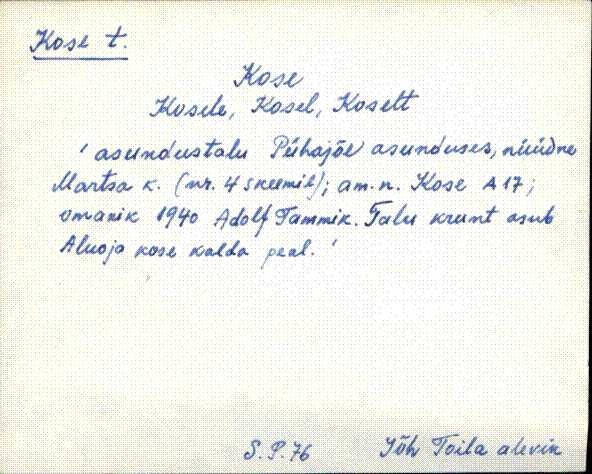 Kose t.
Kose
Kosele, Kosel, Koselt
' asundustalu Pühajõe asunduses, nüüdne
Martsa k. (nr. 4 skeemil); am. n. Kose A 17;
omanik 1940 Adolf Tammik. Talu krunt asub
Aluoja kose kalda peal. '
S. P. 76
Jõh Toila alevik